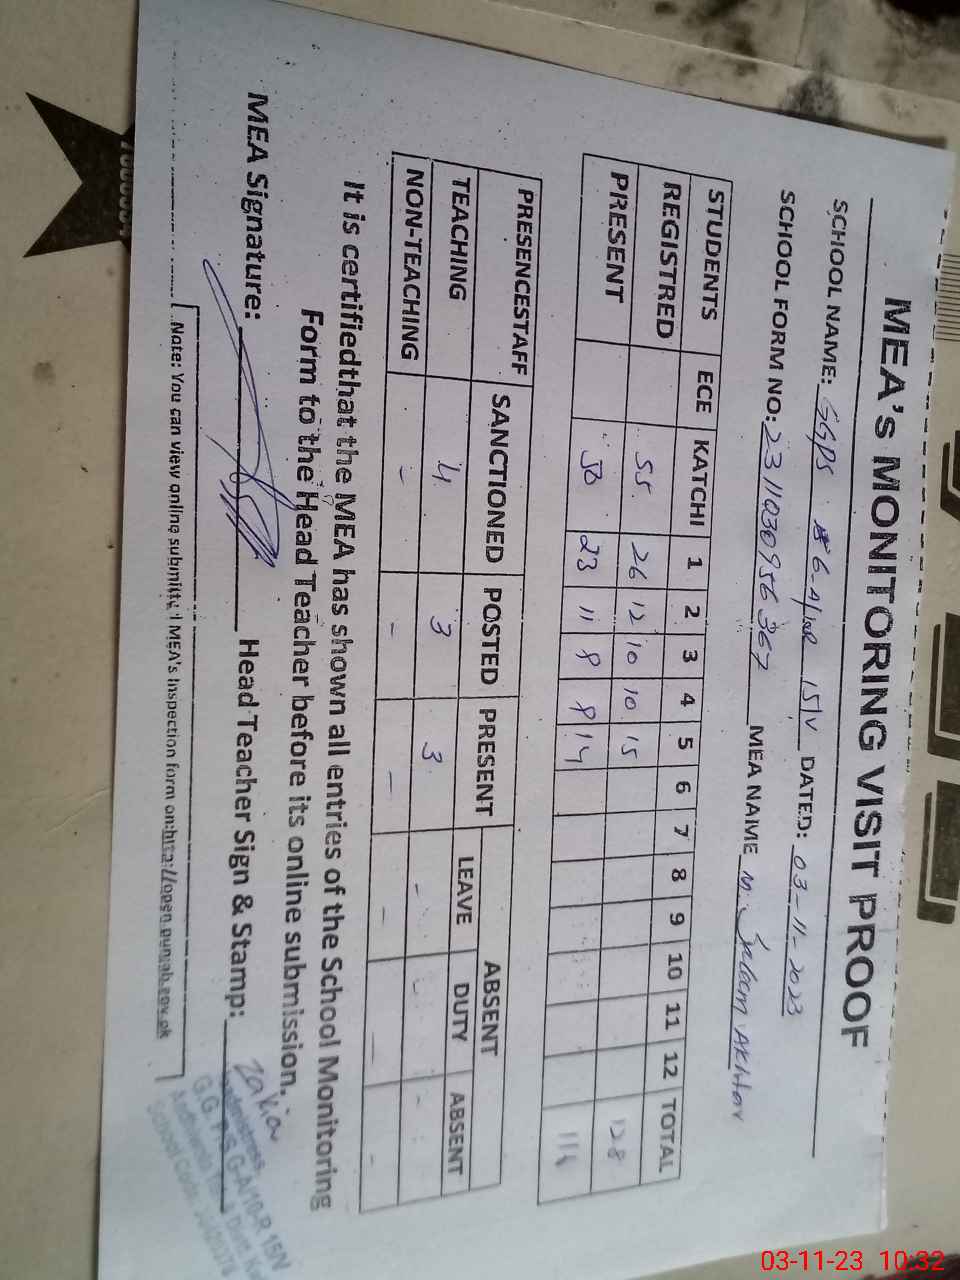 MEA's MONITORING VISIT PROOF
SCHOOL NAME: GGPS 6-A/10R 15/V DATED: 03-11-2023
SCHOOL FORM NO: 2311030956367 MEA NAME M. Saleem Akhtar
STUDENTS ECE KATCHI 1 2 3 4 5 6 7 8 9 10 11 12 TOTAL
REGISTRED 55 26 12 10 10 15 128
PRESENT 50 23 11 8 8 14 114
PRESENCESTAFF SANCTIONED POSTED PRESENT ABSENT
LEAVE DUTY ABSENT
TEACHING 4 3 3 - - -
NON-TEACHING - - - - - -
It is certifiedthat the MEA has shown all entries of the School Monitoring
Form to the Head Teacher before its online submission.
MEA Signature: Head Teacher Sign & Stamp: Zakia
Headmistress
G.G. P/S 6-A/10-R 15N
School Code:
Note: You can view online submitted MEA's Inspection form on http://open.punjab.gov.pk
03-11-23 10:32